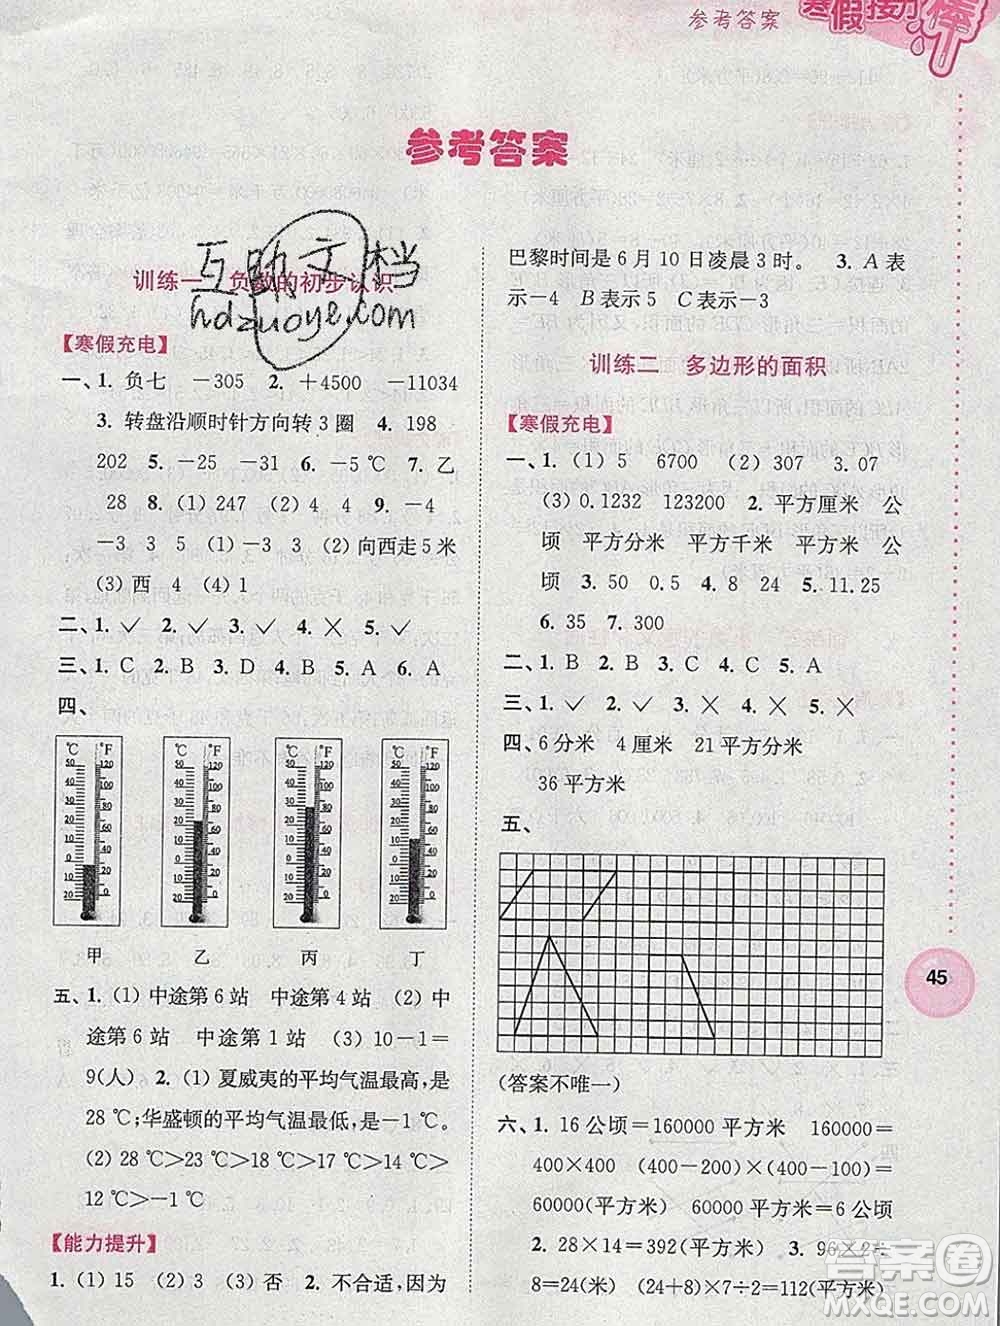 参考答案
寒假接力棒
参考答案
互助文档
hdzuoye.com
训练一 负数的初步认识
【寒假充电】
一、1. 负七 －305 2. ＋4500 －11034
3. 转盘沿顺时针方向转3圈 4. 198
202 5. －25 －31 6. －5 ℃ 7. 乙
28 8. (1) 247 (2) 4 4 9. －4
－3 3 5 (1) －3 3 (2) 向西走5米
(3) 西 4 (4) 1
二、1. ✓ 2. ✓ 3. ✓ 4. × 5. ✓
三、1. C 2. B 3. D 4. A 5. B 6. C
四、
℃ ℉ ℃ ℉ ℃ ℉ ℃ ℉
甲 乙 丙 丁
五、1. (1) 中途第6站 中途第4站 (2) 中
途第6站 中途第1站 (3) 10－1＝
9(人) 2. (1) 夏威夷的平均气温最高,是
28 ℃;华盛顿的平均气温最低,是－1 ℃。
(2) 28 ℃＞23 ℃＞16 ℃＞14 ℃＞
12 ℃＞－1 ℃
【能力提升】
1. (1) 15 (2) 3 (3) 否 2. 不合适,因为
巴黎时间是6月10日凌晨3时。 3. A表
示－4 B表示5 C表示－3
训练二 多边形的面积
【寒假充电】
一、1. (1) 5 6700 (2) 307 3.07
(3) 0.1232 123200 2. 平方厘米 公
顷 平方分米 平方千米 平方米 公
顷 3. 50 0.5 4. 8 24 5. 11.25
6. 35 7. 300
二、1. B 2. B 3. C 4. C 5. A
三、1. ✓ 2. ✓ 3. × 4. × 5. ×
四、6分米 4厘米 21平方分米
36平方米
五、
(答案不唯一)
六、1. 16公顷＝160000平方米 160000＝
400×400 (400－200)×(400－100)＝
60000(平方米) 60000平方米＝6公顷
2. 28×14＝392(平方米) 3. 96×2÷
8＝24(米) (24＋8)×7÷2＝112(平方米)
45
答案圈
MXQE.COM